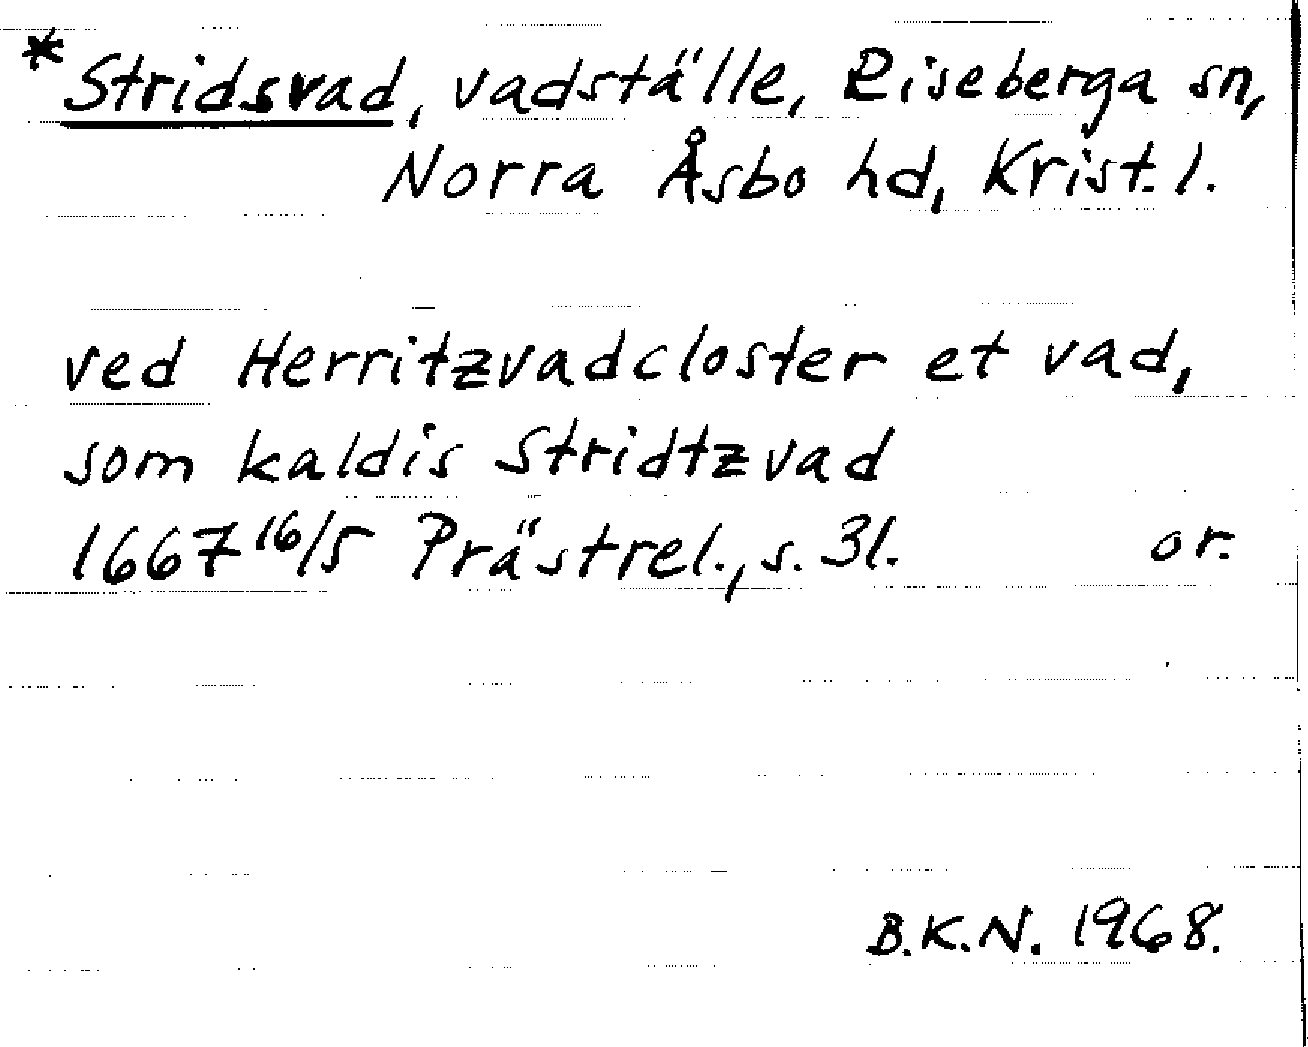 *Stridsvad, vadställe, Riseberga sn,
Norra Åsbo hd, Krist. l.
ved Herritzvadcloster et vad,
som kaldis Stridtzvad
1667 16/5 Prästrel., s. 31. or.
B.K.N. 1968.